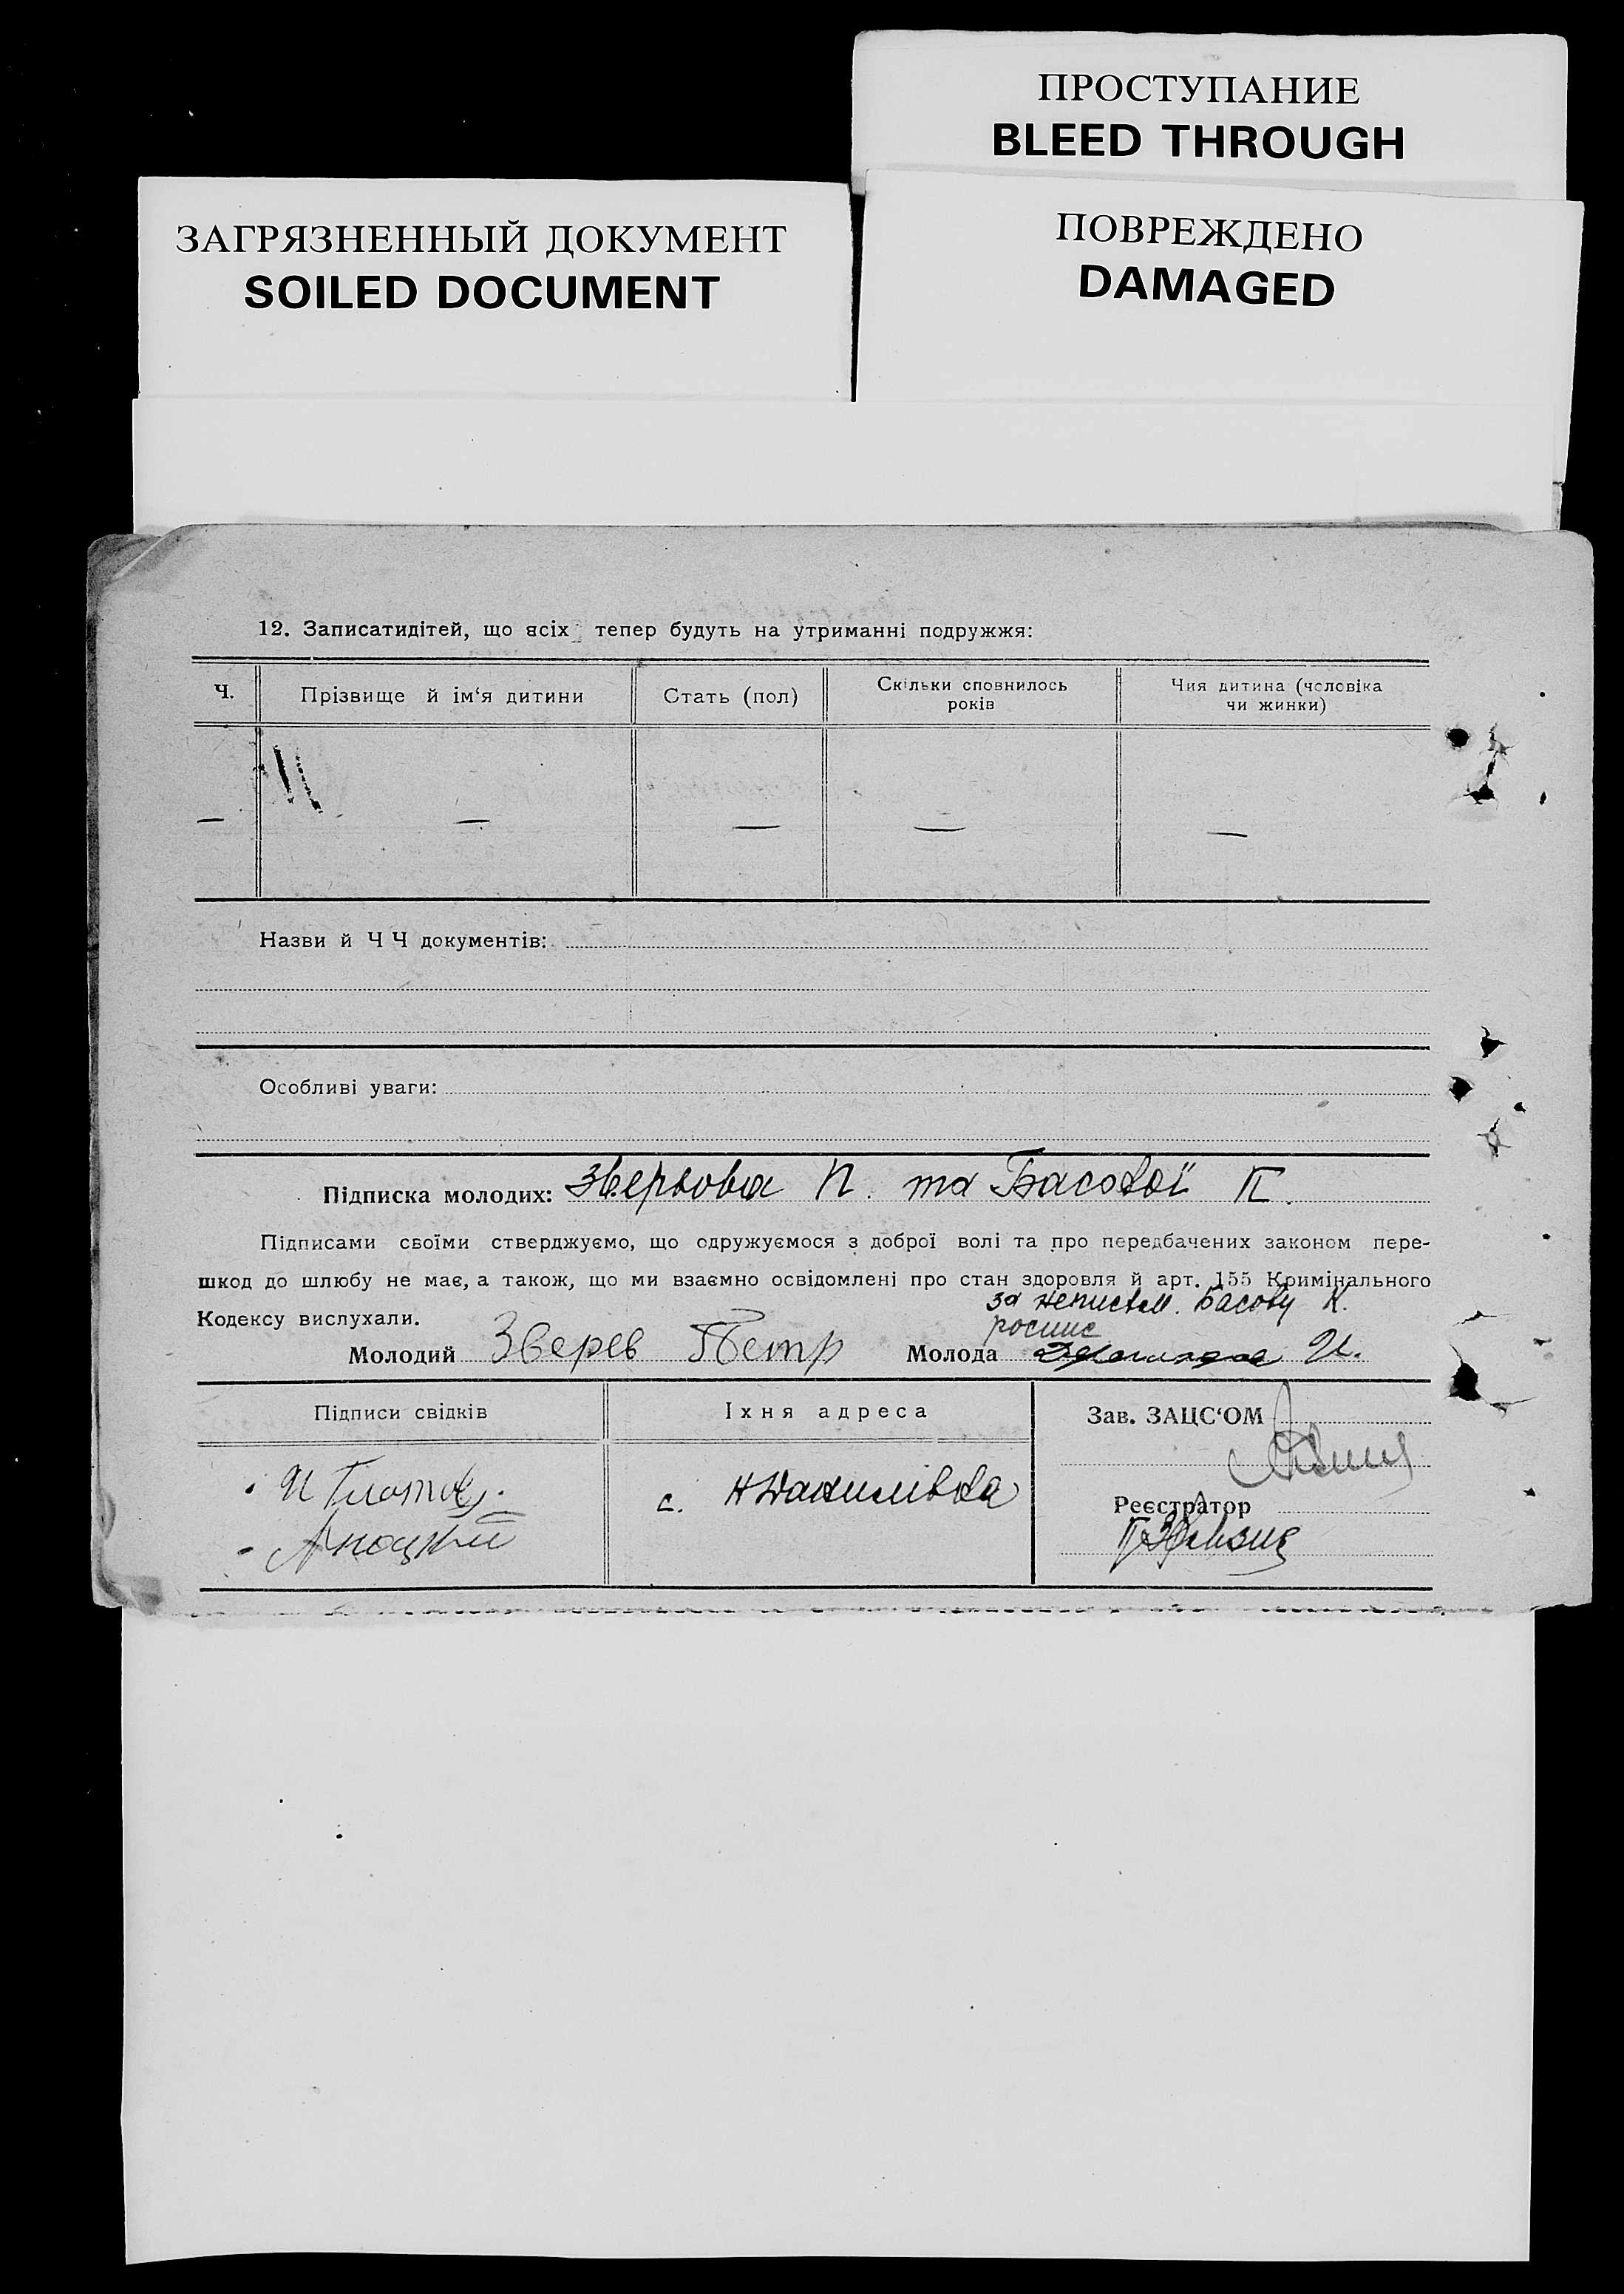 ПРОСТУПАНИЕ
BLEED THROUGH
ЗАГРЯЗНЕННЫЙ ДОКУМЕНТ
SOILED DOCUMENT
ПОВРЕЖДЕНО
DAMAGED
12. Записатидітей, що всіх тепер будуть на утриманні подружжя:
Ч. Прізвище й ім‘я дитини Стать (пол) Скільки сповнилось років Чия дитина (чоловіка чи жинки)
— — — — —
Назви й Ч Ч документів:
Особливі уваги:
Підписка молодих: Зверьова П. та Басової П.
Підписами своїми стверджуємо, що одружуємося з доброї волі та про передбачених законом пере-
шкод до шлюбу не має, а також, що ми взаємно освідомлені про стан здоровля й арт. 155 Кримінального
Кодексу вислухали.
за неписьм. Басову
Молодий Зверев Петр Молода
Підписи свідків Їхня адреса Зав. ЗАЦС‘ОМ
с.
Реєстратор